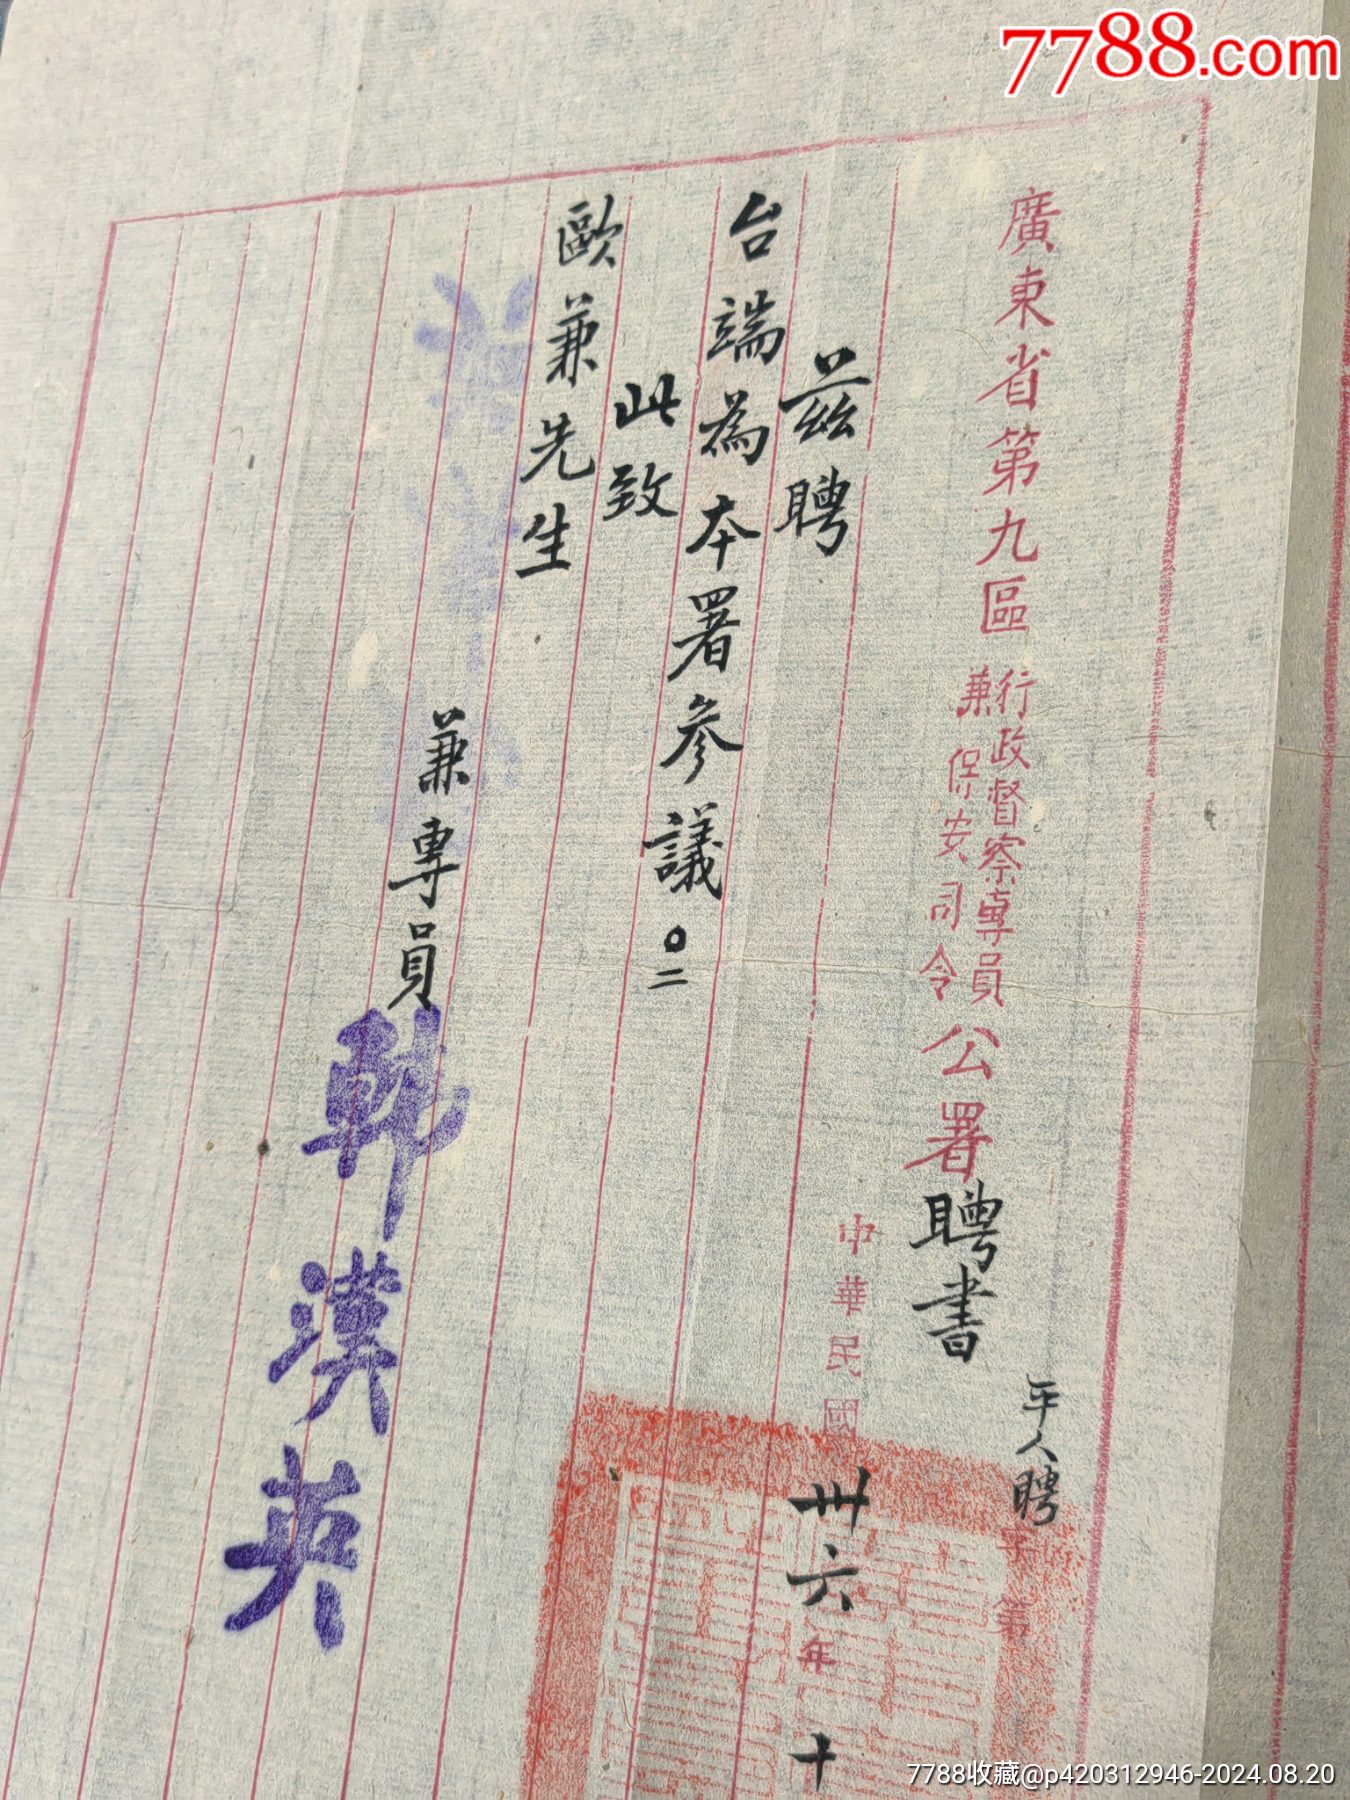 7788.com
廣東省第九區行政督察專員兼保安司令公署聘書
平人聘字第
中華民國卅六年十
茲聘
台端為本署參議。
此致
歐兼先生
兼專員韓漢英
7788收藏@p420312946-2024.08.20